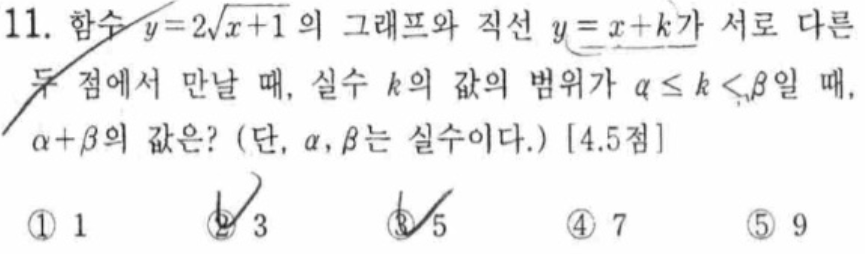 11. 함수 y=2√(x+1) 의 그래프와 직선 y=x+k가 서로 다른
두 점에서 만날 때, 실수 k의 값의 범위가 α≤k<β일 때,
α+β의 값은? (단, α, β는 실수이다.) [4.5점]
① 1 ② 3 ③ 5 ④ 7 ⑤ 9